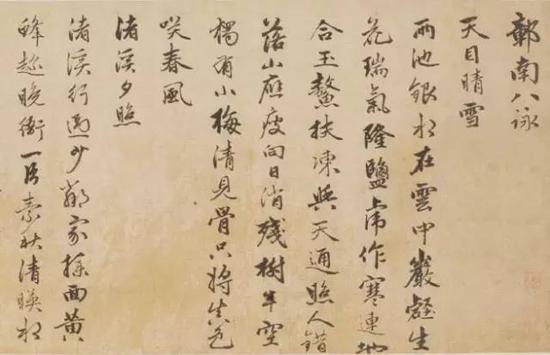 鄣南八詠
天目晴雪
兩池銀水在雲中巖壑生
花瑞氣隆鹽虎作寒連地
合玉鰲扶凍與天通照人錯
落山應瘦向日消殘樹半空
獨有小梅清見骨只將生色
咲春風
渚溪夕照
渚溪行過少鄰家面黃
蜂趁晚衙一片素秋清暎水